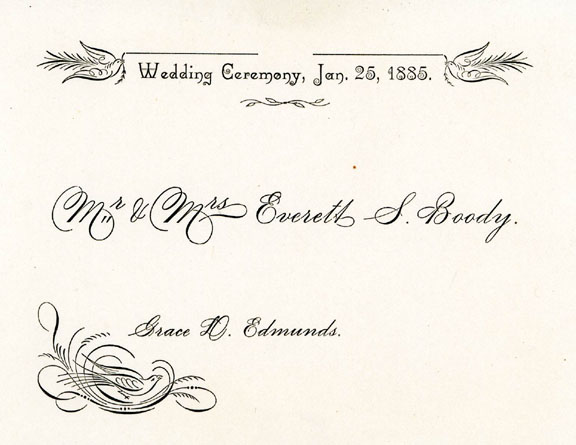 Wedding Ceremony, Jan. 25, 1885.
Mr & Mrs Everett S. Boody.
Grace H. Edmunds.